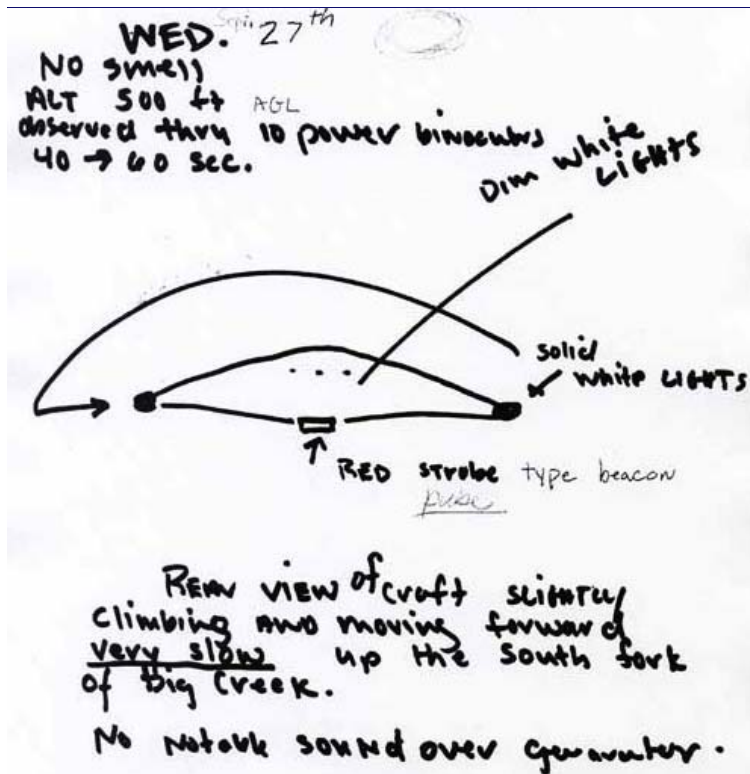 WED. Sept. 27th
No smell
ALT 500 ft AGL
observed thru 10 power binoculars
40 → 60 sec.
Dim white
LIGHTS
solid
white LIGHTS
RED strobe type beacon
pulse
Rear view of craft slightly
climbing AND moving forward
very slow up the south fork
of Big Creek.
No Notable sound over generator.